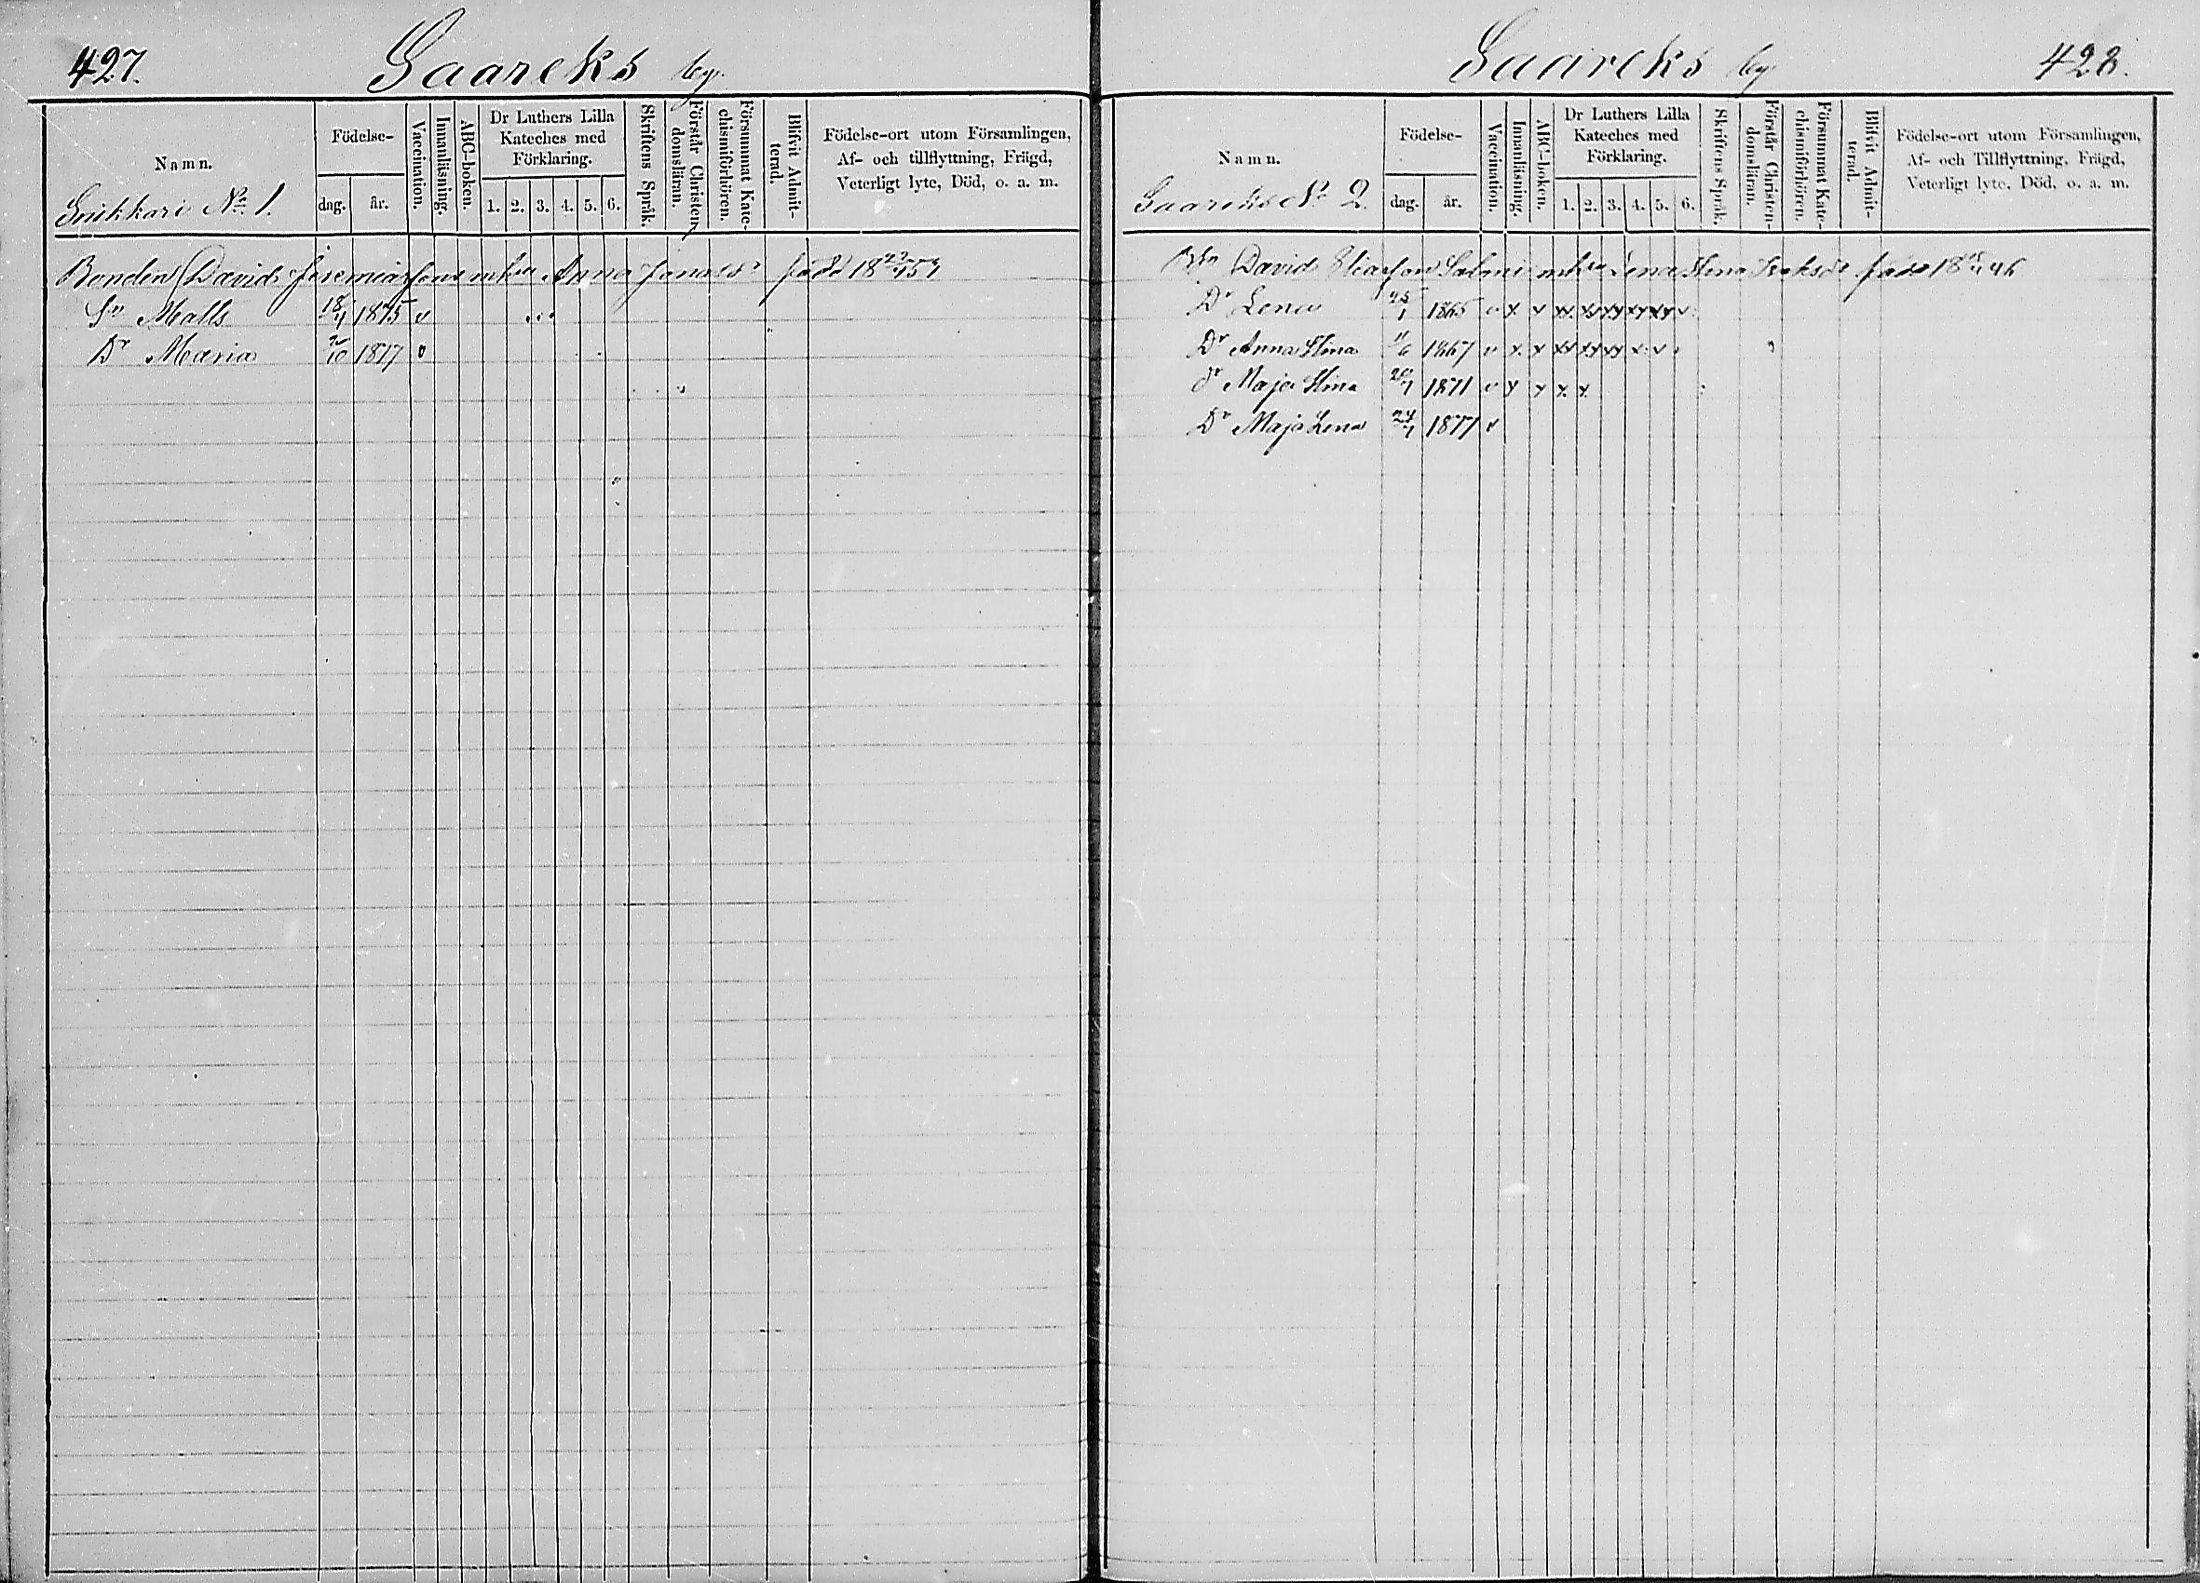 427. Saareks by.
Namn.
Födelse-
dag. år.
Vaccination.
Innanläsning.
ABC-boken.
Dr Luthers Lilla
Kateches med
Förklaring.
1. 2. 3. 4. 5. 6.
Skriftens Språk.
Förstår Christen-
domsläran.
Försummat Kate-
chismiförhören.
Blifvit Admit-
terad.
Födelse-ort utom Församlingen,
Af- och tillflyttning, Frägd,
Veterligt lyte, Död, o. a. m.
Snikkari No 1.
Bonden David Jeremiasson m hu Anna född 18
Sn Matts 18/4 1875 v
Dr Maria 1877 v
Saareks by 428.
Namn.
Födelse-
dag. år.
Vaccination.
Innanläsning.
ABC-boken.
Dr Luthers Lilla
Kateches med
Förklaring.
1. 2. 3. 4. 5. 6.
Skriftens Språk.
Förstår Christen-
domsläran.
Försummat Kate-
chismiförhören.
Blifvit Admit-
terad.
Födelse-ort utom Församlingen,
Af- och Tillflyttning, Frägd,
Veterligt lyte, Död, o. a. m.
Saareks No 2.
David Eliasson Salmi m hu Lena Stina född 18
Dr Lena 25/1 1865 v x x xx xx xx xx xx v
Dr Anna Stina 11/6 1867 v x x xx xx xx x v
dr Maja Stina 1871 v x x x x
Dr Maja Lena 1877 v